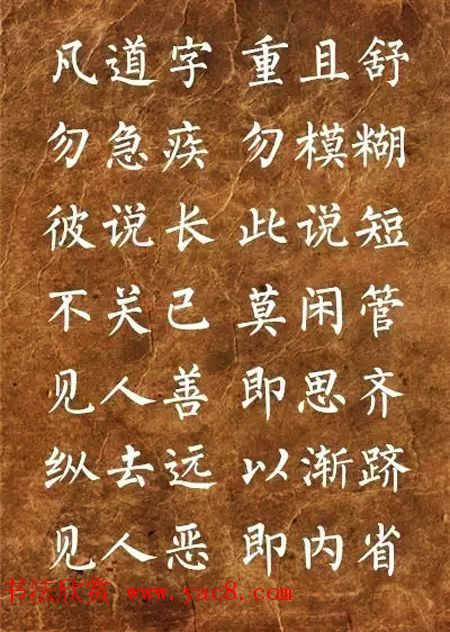 凡道字 重且舒
勿急疾 勿模糊
彼说长 此说短
不关己 莫闲管
见人善 即思齐
纵去远 以渐跻
见人恶 即内省
书法欣赏 www.yac8.com